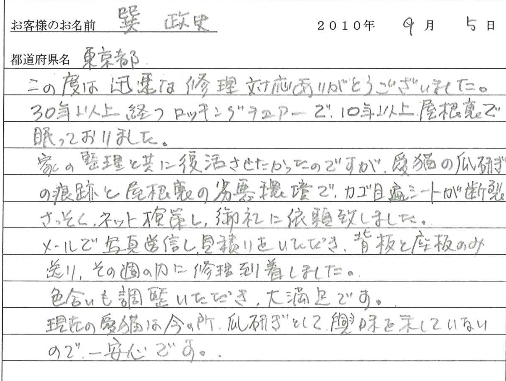 お客様のお名前 巽 政史 2010年 9月 5日
都道府県名 東京都
この度は迅速な修理対応ありがとうございました。
30年以上経つロッキングチェアーで、10年以上屋根裏で
眠っておりました。
家の整理と共に復活させたかったのですが、愛猫の爪研ぎ
の痕跡と屋根裏の劣悪環境で、カゴ目シートが断裂
さっそく、ネット検索し、御社に依頼致しました。
メールで写真送信し見積りをいただき、背板と座板のみ
送り、その週の内に修理到着しました。
色合いも調整いただき、大満足です。
現在の愛猫は今の所、爪研ぎとして興味を示していない
ので、一安心です。